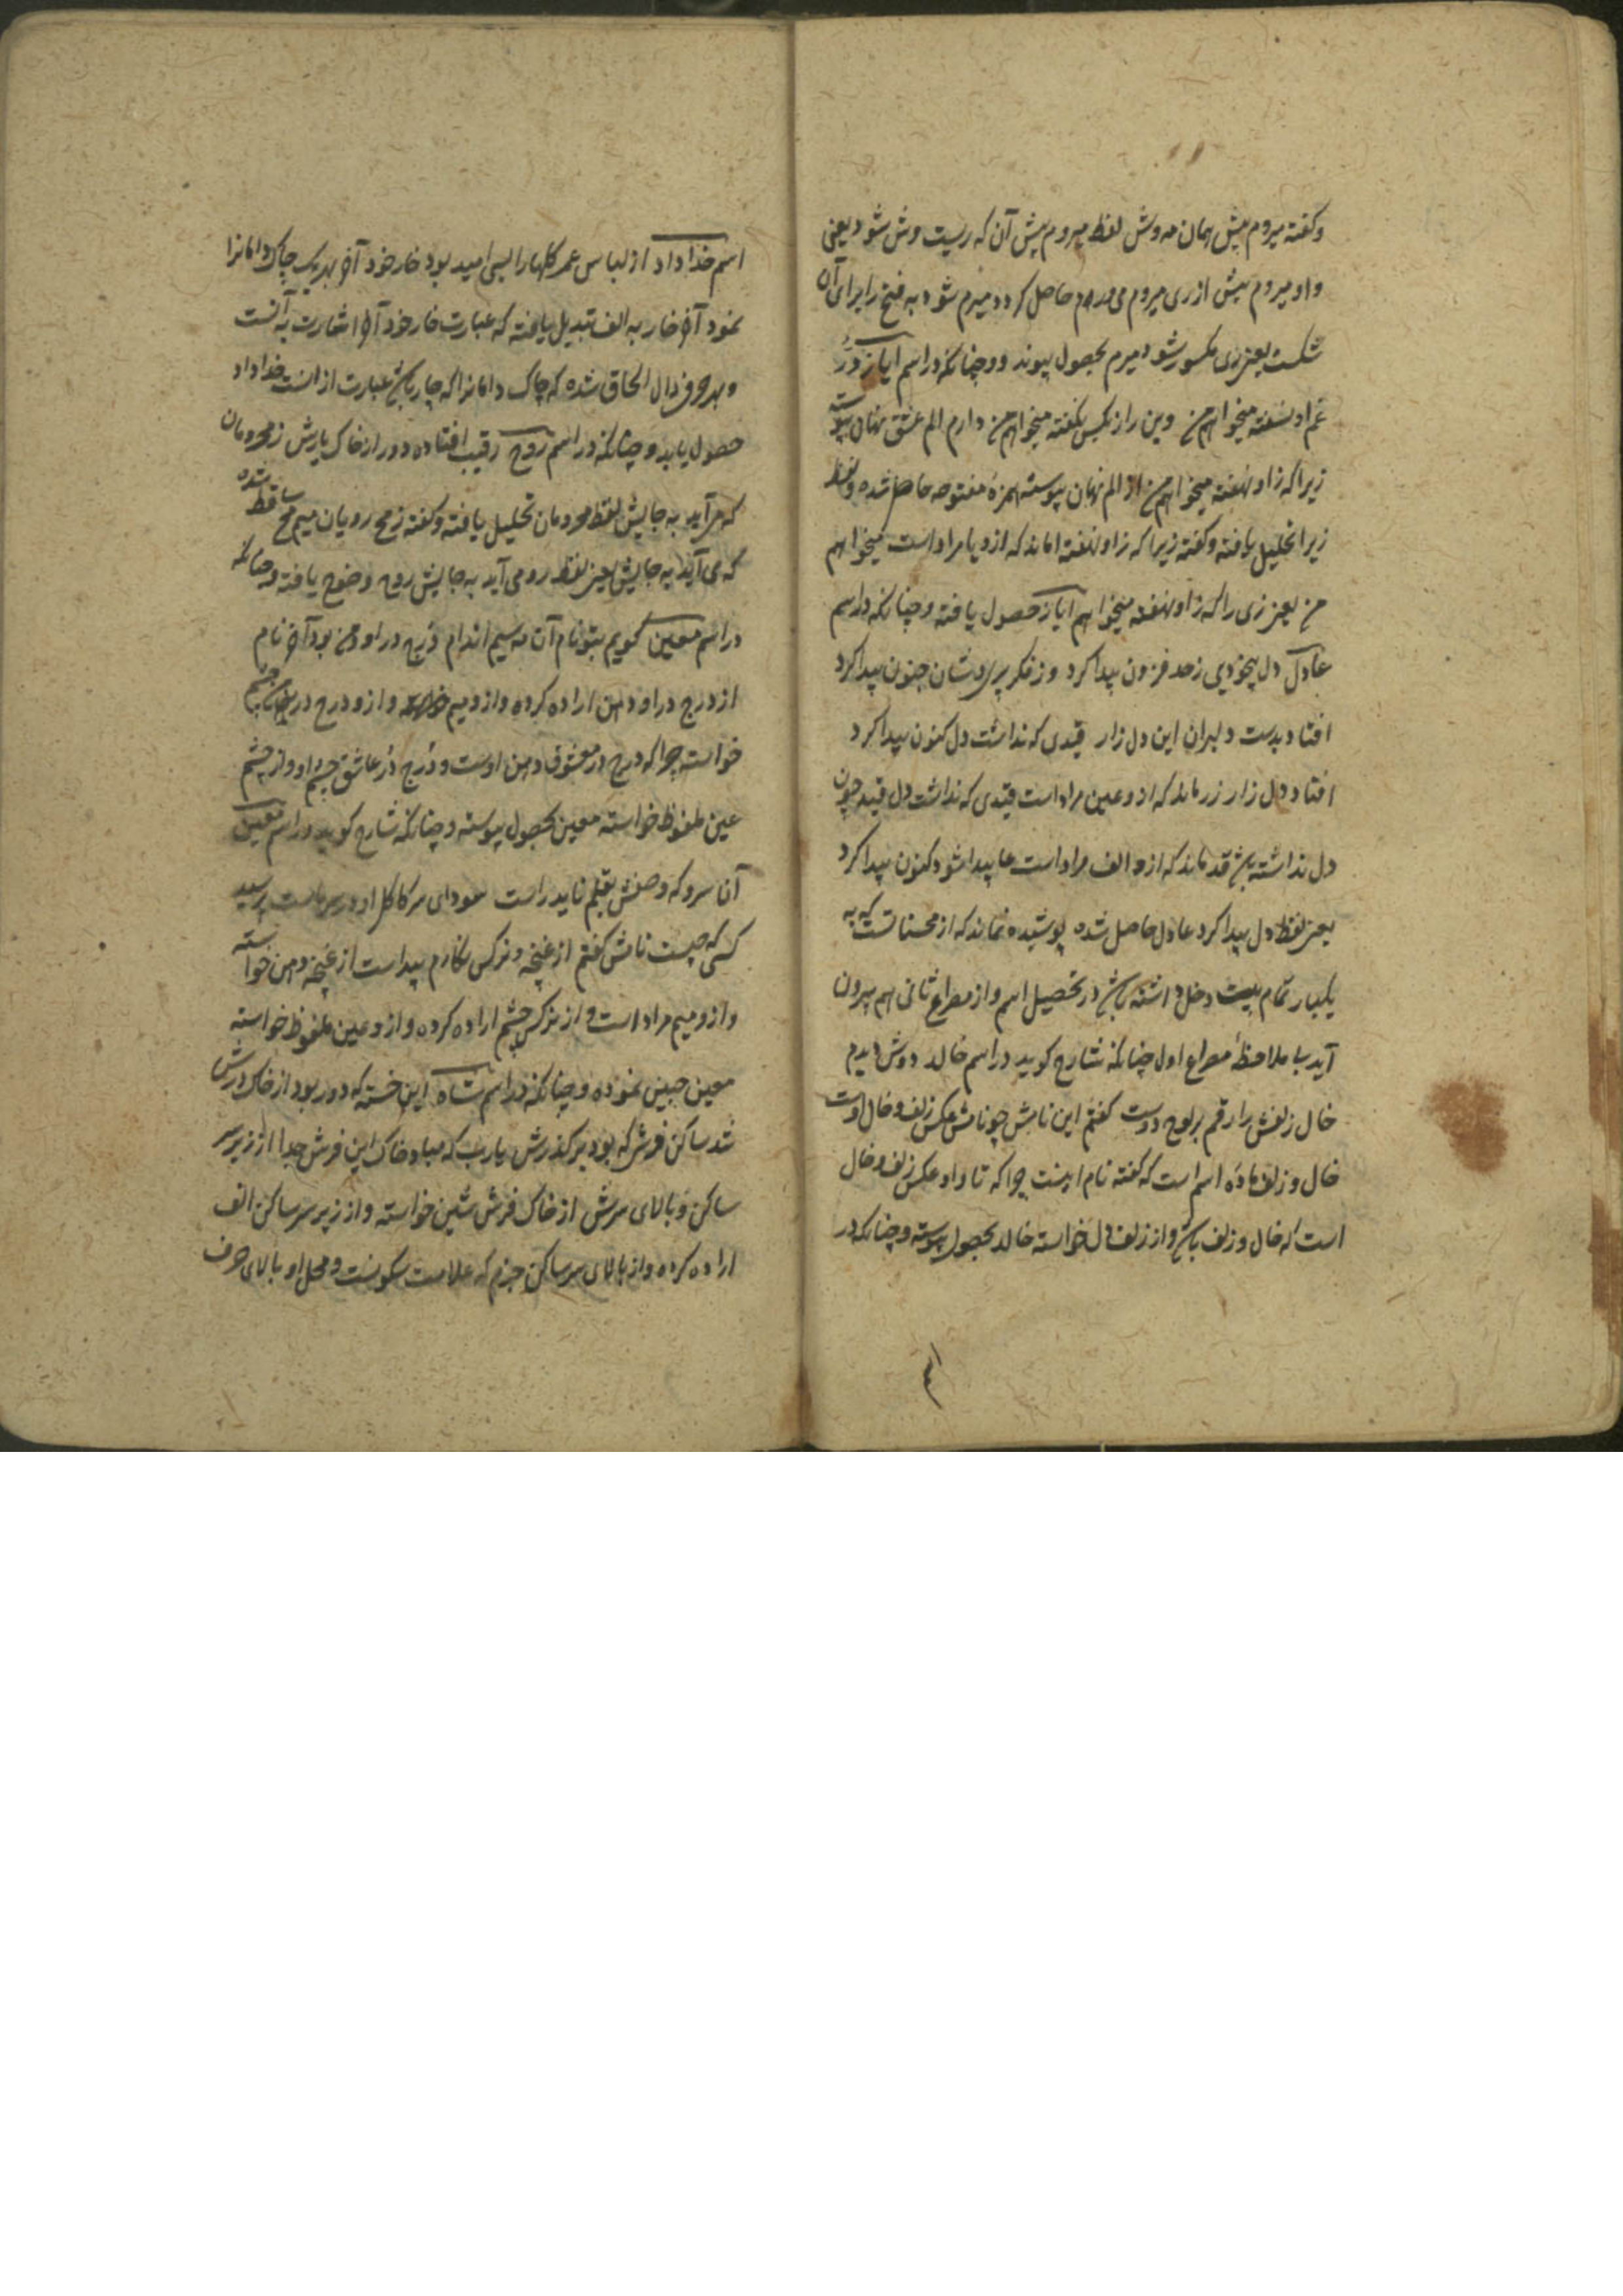 وکفته میروم پیش همان مه وش لفظ میروم پیش آن که ریست وش شود یعنی
واو میروم پیش از ری میروم حاصل کردد میرم شود به فتح را برای آن
شکست یعنی ری مکسور شود میرم بحصول پیوندد و چنانکه در اسم ایاز
غم او نهفته میخواهم من وین راز بکس نکفته میخواهم من دارم الم عشق نهان پیوسته
زیرا که ز او نهفته میخواهم من از الم نهان پیوسته همزهٔ مفتوحه حاصل شده و لفظ
زیرا تحلیل یافته و کفته زیرا که ز او نهفته اماند که ازو یا مراد است میخواهم
من یعنی زی را که ز او نهفته میخواهم ایاز حصول یافته و چنانکه در اسم
عادل دل بیخودیی زحد فزون پیدا کرد وز فکر پریوشان جنون پیدا کرد
افتاد بدست دلبران این دل زار قیدی که نداشت دل کنون پیدا کرد
افتاد دل زار زر ماند که ازو عین مراد است قیدی که نداشت دل قید چون
دل نداشته باشد قد ماند که ازو الف مراد است عا پیدا شود کنون پیدا کرد
یعنی لفظ دل پیدا کرد عادل حاصل شده پوشیده نماند که از محسناتست که به
یکبار تمام بیت دخل داشته باشد در تحصیل اسم و از مصراع ثانی اسم بیرون
آید با ملاحظهٔ مصراع اول چنانکه شارح کوید در اسم خالد دوش دیدم
خال زلفش را رقم بر لوح دوست کفتم این نامش چو نامش عکس زلف و خال اوست
خال و زلف مادهٔ اسم است که کفته نام اینست چرا که تا واو عکس زلف و خال
است که خال و زلف باشد و از زلف دال خواسته خالد بحصول پیوسته و چنانکه در
اسم خداداد از لباس عمر کلها را بسی امید بود خار خود آخر بهر یک چاک دامانرا
نمود آخر خار به الف تبدیل یافته که عبارت خار خود آخر اشارت به آنست
و بهر حرف دال الحاق شده که چاک دامانرا که چار باشد عبارت از انست خداداد
حصول یابد و چنانکه در اسم روح رقیب افتاده دور از خاک پایش ز محرومان
که می آید به جایش لفظ محرومان تحلیل یافته و کفته ز مح رومان میم مح ساقط شده
که می آید به جایش یعنی لفظ رو می آید به جایش روح وضوح یافته و چنانکه
در اسم معین کویم بتو نام آن مه سیم اندام درج در او و من بود آخر نام
از درج در او دهن اراده کرده و ازو میم خواسته و ازو درج در من چشم
خواسته چرا که درج در معشوق دهن اوست و درج در عاشق چشم او و از چشم
عین ملفوظ خواسته معین بحصول پیوسته و چنانکه شارح کوید در اسم معین
آن سرو که وصفش بقلم ناید راست سودای سر کاکل او در سر ماست پرسید
کسی که چیست نامش کفتم از غنچه و نرکس نکارم پیداست از غنچه دهن خواسته
و ازو میم مراد است و از نرکس چشم اراده کرده و ازو عین ملفوظ خواسته
معین مبین نموده و چنانکه در اسم شاه این خسته که دور بود از خاک درش
شد ساکن فرش که بود بر کذرش یارب که مباد خاک این فرش جدا از زیر سر
ساکن و بالای سرش از خاک فرش شین خواسته و از زیر سر ساکن الف
اراده کرده و از بالای سر ساکن جزم که علامت سکونست و محل او بالای حرف